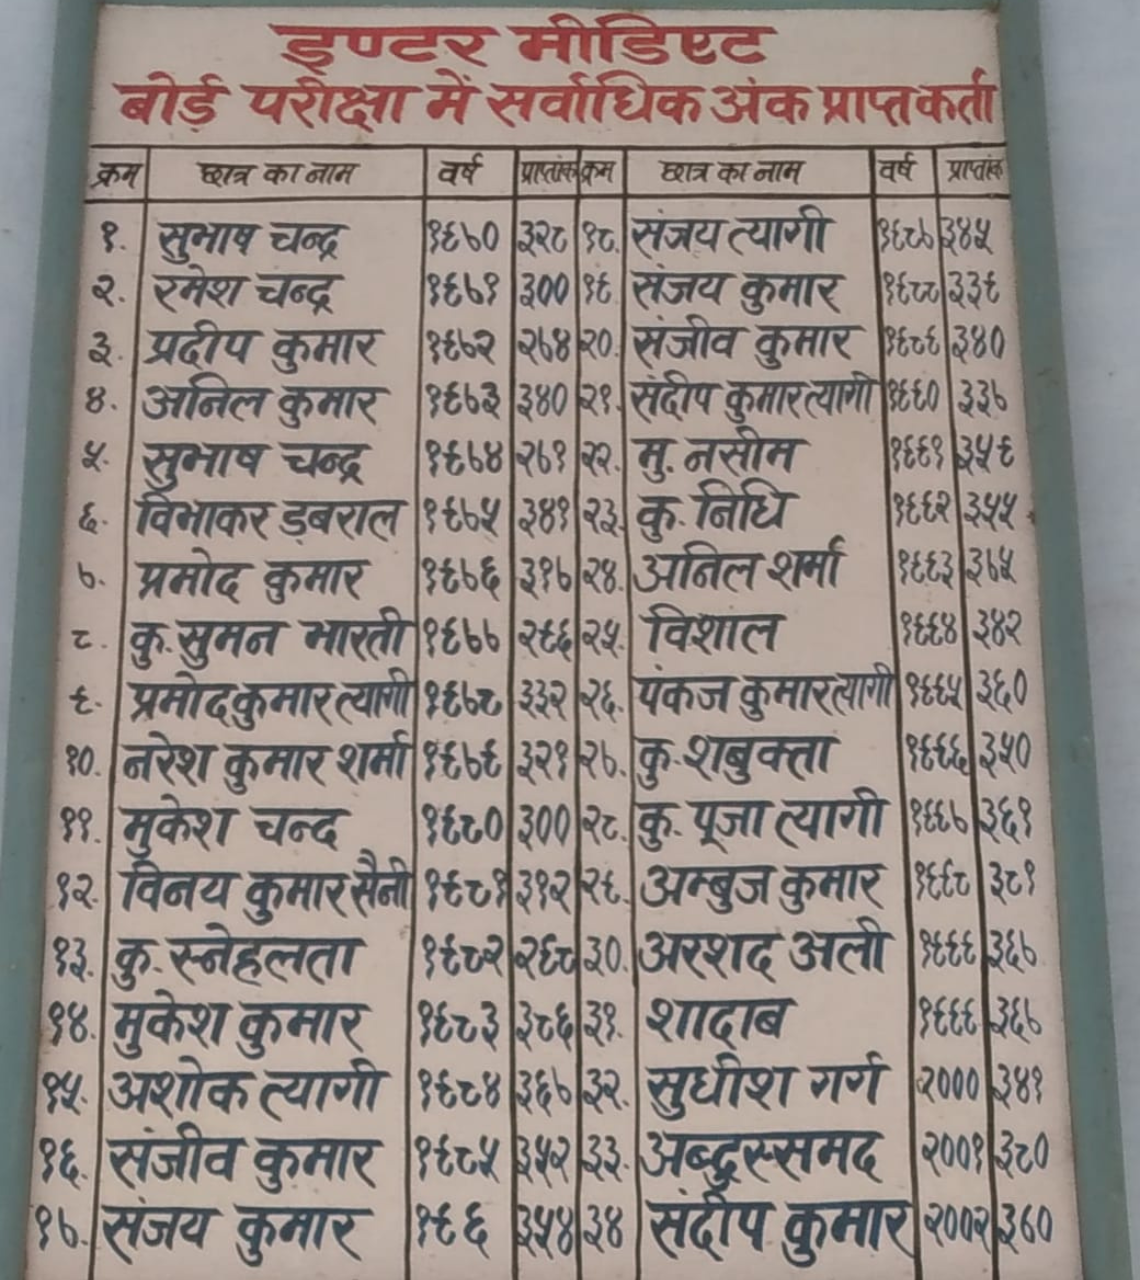 इण्टर मीडिएट
बोर्ड परीक्षा में सर्वाधिक अंक प्राप्तकर्ता
क्रम छात्र का नाम वर्ष प्राप्तांक क्रम छात्र का नाम वर्ष प्राप्तांक
१. सुभाष चन्द्र १९७० ३२८ १८. संजय त्यागी १९८७ ३४५
२. रमेश चन्द्र १९७१ ३०० १९. संजय कुमार १९८८ ३३९
३. प्रदीप कुमार १९७२ २७४ २०. संजीव कुमार १९८९ ३४०
४. अनिल कुमार १९७३ ३४० २१. संदीप कुमार त्यागी १९९० ३३७
५. सुभाष चन्द्र १९७४ २७१ २२. मु. नसीम १९९१ ३५९
६. विभाकर ड़बराल १९७५ ३४१ २३. कु. निधि १९९२ ३५५
७. प्रमोद कुमार १९७६ ३१७ २४. अनिल शर्मा १९९३ ३७५
८. कु. सुमन भारती १९७७ २९६ २५. विशाल १९९४ ३४२
९. प्रमोद कुमार त्यागी १९७८ ३३२ २६. पंकज कुमार त्यागी १९९५ ३६०
१०. नरेश कुमार शर्मा १९७९ ३२१ २७. कु. शबुक्ता १९९६ ३५०
११. मुकेश चन्द १९८० ३०० २८. कु. पूजा त्यागी १९९७ ३६१
१२. विनय कुमार सैनी १९८१ ३१२ २९. अम्बुज कुमार १९९८ ३८१
१३. कु. स्नेहलता १९८२ २९८ ३०. अरशद अली १९९९ ३६७
१४. मुकेश कुमार १९८३ ३८६ ३१. शादाब १९९९ ३६७
१५. अशोक त्यागी १९८४ ३६७ ३२. सुधीश गर्ग २००० ३४१
१६. संजीव कुमार १९८५ ३५२ ३३. अब्दुस्समद २००१ ३८०
१७. संजय कुमार १९६ ३५४ ३४ संदीप कुमार २००२ ३६०